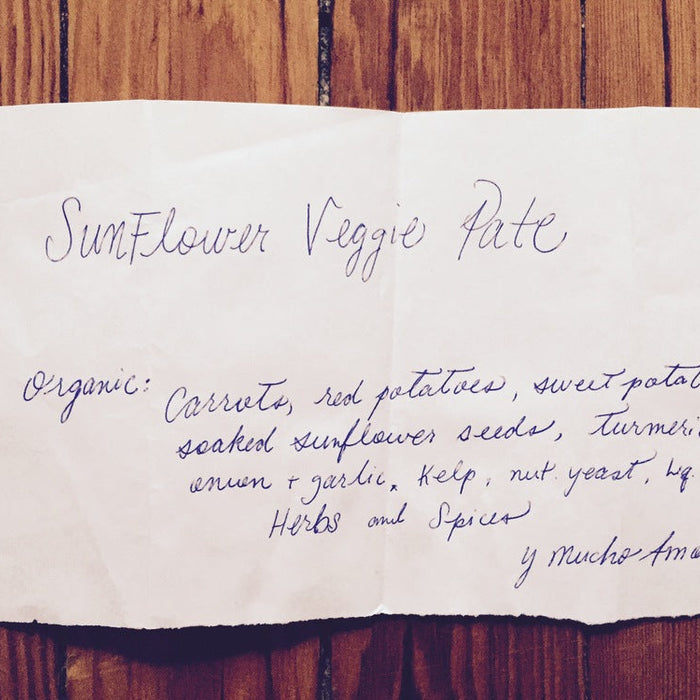 SunFlower Veggie Pate
Organic: Carrots, red potatoes, sweet potat
soaked sunflower seeds, turmeri
onion + garlic, Kelp, nut. yeast, Lq.
Herbs and Spices
y Mucho Amo